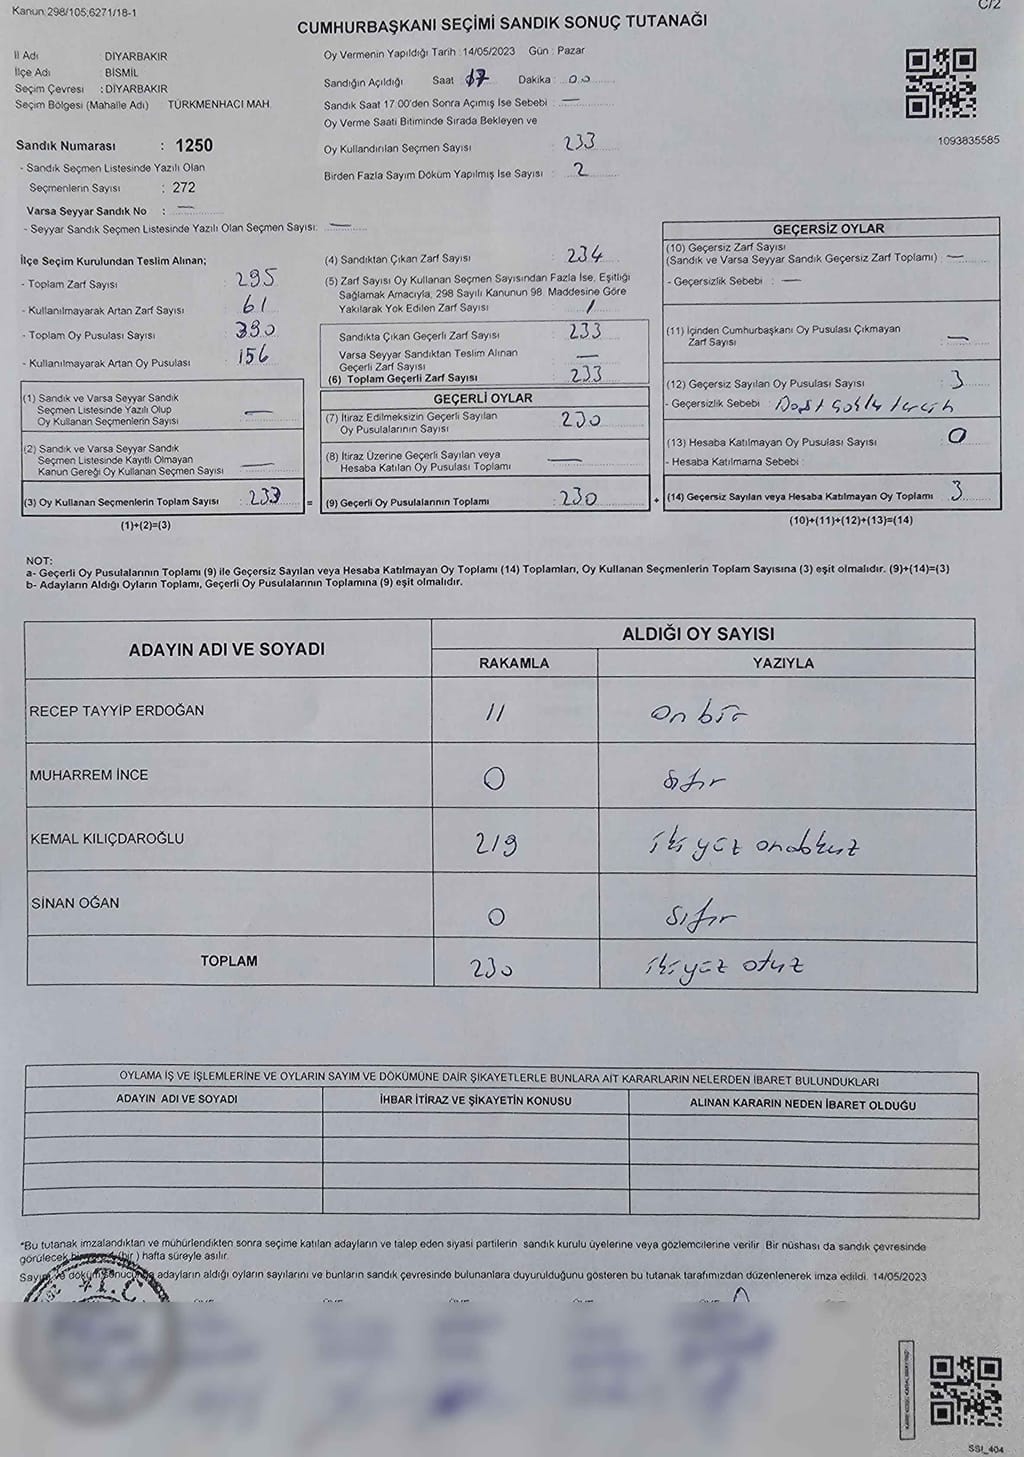 Kanun:298/105;6271/18-1
C/2
CUMHURBAŞKANI SEÇİMİ SANDIK SONUÇ TUTANAĞI
İl Adı DİYARBAKIR
İlçe Adı : BİSMİL
Seçim Çevresi : DİYARBAKIR
Seçim Bölgesi (Mahalle Adı) : TÜRKMENHACI MAH.
Sandık Numarası : 1250
- Sandık Seçmen Listesinde Yazılı Olan
Seçmenlerin Sayısı : 272
Varsa Seyyar Sandık No : —
- Seyyar Sandık Seçmen Listesinde Yazılı Olan Seçmen Sayısı: —
Oy Vermenin Yapıldığı Tarih : 14/05/2023 Gün : Pazar
Sandığın Açıldığı Saat : 17 Dakika : 00
Sandık Saat 17.00'den Sonra Açımış İse Sebebi : —
Oy Verme Saati Bitiminde Sırada Bekleyen ve
Oy Kullandırılan Seçmen Sayısı : 233
Birden Fazla Sayım Döküm Yapılmış İse Sayısı : 2
1093835585
İlçe Seçim Kurulundan Teslim Alınan;
- Toplam Zarf Sayısı : 295
- Kullanılmayarak Artan Zarf Sayısı : 61
- Toplam Oy Pusulası Sayısı : 390
- Kullanılmayarak Artan Oy Pusulası : 156
(1) Sandık ve Varsa Seyyar Sandık
Seçmen Listesinde Yazılı Olup
Oy Kullanan Seçmenlerin Sayısı : —
(2) Sandık ve Varsa Seyyar Sandık
Seçmen Listesinde Kayıtlı Olmayan
Kanun Gereği Oy Kullanan Seçmen Sayısı : —
(3) Oy Kullanan Seçmenlerin Toplam Sayısı : 233
(1)+(2)=(3)
(4) Sandıktan Çıkan Zarf Sayısı : 234
(5) Zarf Sayısı Oy Kullanan Seçmen Sayısından Fazla İse, Eşitliği
Sağlamak Amacıyla, 298 Sayılı Kanunun 98. Maddesine Göre
Yakılarak Yok Edilen Zarf Sayısı : 1
Sandıkta Çıkan Geçerli Zarf Sayısı : 233
Varsa Seyyar Sandıktan Teslim Alınan
Geçerli Zarf Sayısı : —
(6) Toplam Geçerli Zarf Sayısı : 233
GEÇERLİ OYLAR
(7) İtiraz Edilmeksizin Geçerli Sayılan
Oy Pusulalarının Sayısı : 230
(8) İtiraz Üzerine Geçerli Sayılan veya
Hesaba Katılan Oy Pusulası Toplamı : —
= (9) Geçerli Oy Pusulalarının Toplamı : 230
GEÇERSİZ OYLAR
(10) Geçersiz Zarf Sayısı
(Sandık ve Varsa Seyyar Sandık Geçersiz Zarf Toplamı) : —
- Geçersizlik Sebebi : —
(11) İçinden Cumhurbaşkanı Oy Pusulası Çıkmayan
Zarf Sayısı : —
(12) Geçersiz Sayılan Oy Pusulası Sayısı : 3
- Geçersizlik Sebebi :
(13) Hesaba Katılmayan Oy Pusulası Sayısı : 0
- Hesaba Katılmama Sebebi :
+ (14) Geçersiz Sayılan veya Hesaba Katılmayan Oy Toplamı : 3
(10)+(11)+(12)+(13)=(14)
NOT:
a- Geçerli Oy Pusulalarının Toplamı (9) ile Geçersiz Sayılan veya Hesaba Katılmayan Oy Toplamı (14) Toplamları, Oy Kullanan Seçmenlerin Toplam Sayısına (3) eşit olmalıdır. (9)+(14)=(3)
b- Adayların Aldığı Oyların Toplamı, Geçerli Oy Pusulalarının Toplamına (9) eşit olmalıdır.
ADAYIN ADI VE SOYADI ALDIĞI OY SAYISI
RAKAMLA YAZIYLA
RECEP TAYYİP ERDOĞAN 11 on bir
MUHARREM İNCE 0 sıfır
KEMAL KILIÇDAROĞLU 219 iki yüz ondokuz
SİNAN OĞAN 0 sıfır
TOPLAM 230 ikiyüz otuz
OYLAMA İŞ VE İŞLEMLERİNE VE OYLARIN SAYIM VE DÖKÜMÜNE DAİR ŞİKAYETLERLE BUNLARA AİT KARARLARIN NELERDEN İBARET BULUNDUKLARI
ADAYIN ADI VE SOYADI İHBAR İTİRAZ VE ŞİKAYETİN KONUSU ALINAN KARARIN NEDEN İBARET OLDUĞU
*Bu tutanak imzalandıktan ve mühürlendikten sonra seçime katılan adayların ve talep eden siyasi partilerin sandık kurulu üyelerine veya gözlemcilerine verilir. Bir nüshası da sandık çevresinde
görülecek (bir) hafta süreyle asılır.
Sayım ve döküm sonucunda adayların aldığı oyların sayılarını ve bunların sandık çevresinde bulunanlara duyurulduğunu gösteren bu tutanak tarafımızdan düzenlenerek imza edildi. 14/05/2023
T.C.
SSI_404